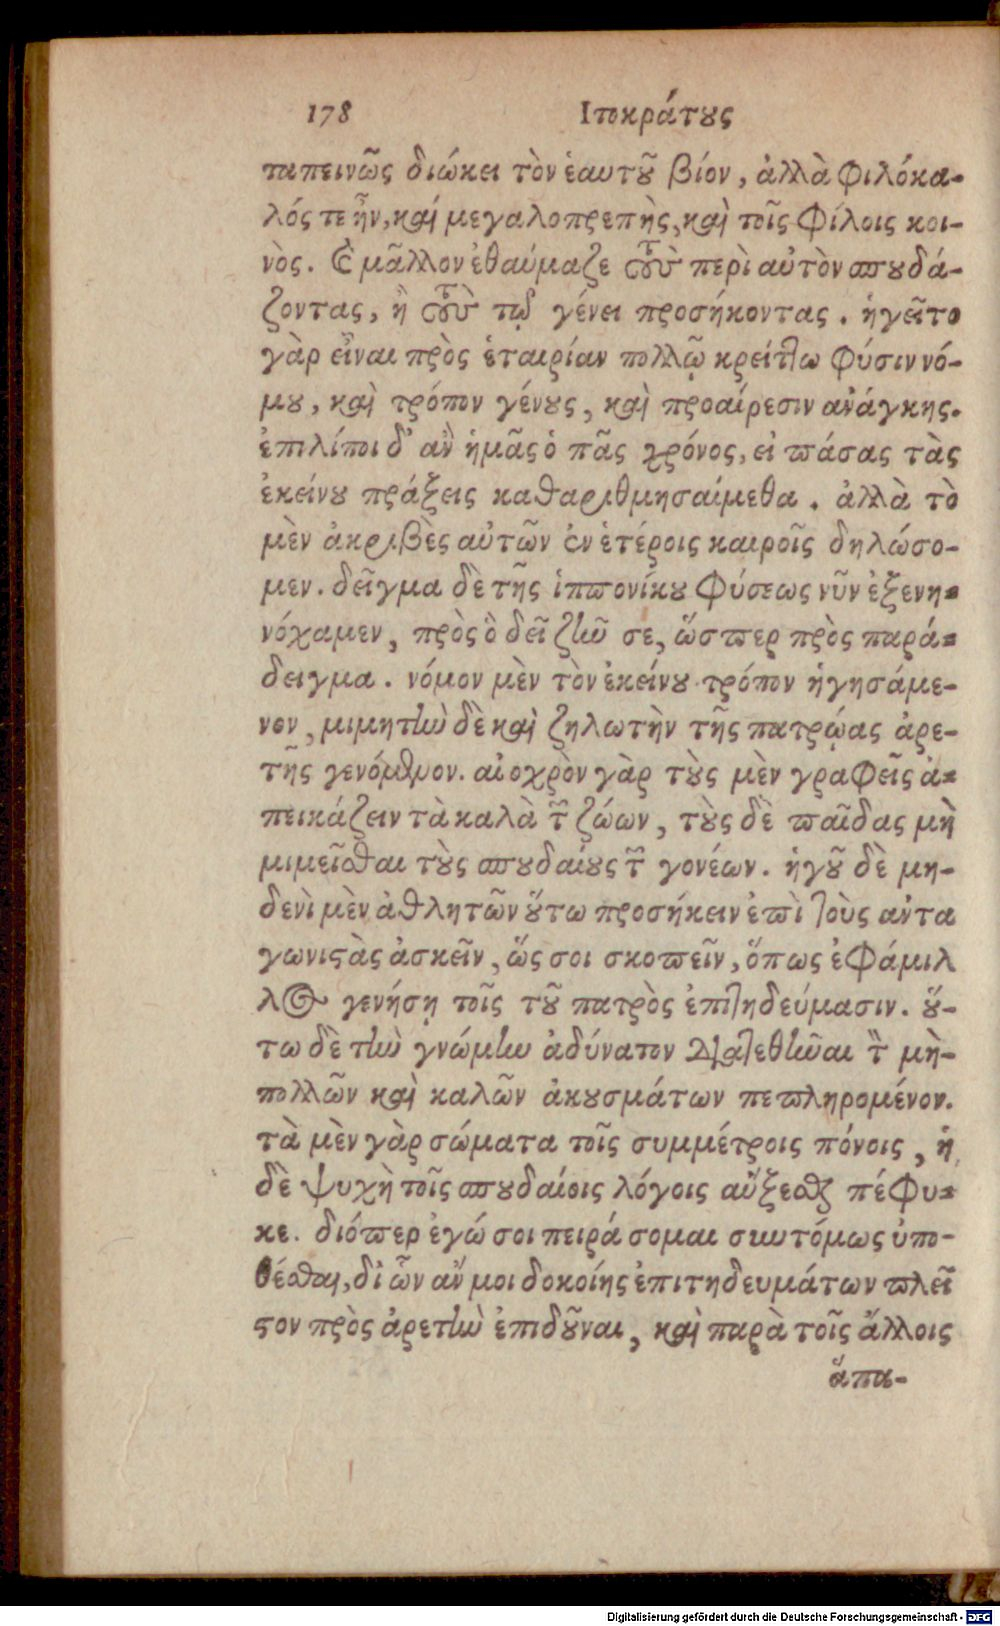 178 Ισοκράτους
ταπεινῶς διώκει τὸν ἑαυτοῦ βίον, ἀλλὰ φιλόκα-
λός τε ἦν, καὶ μεγαλοπρεπὴς, καὶ τοῖς φίλοις κοι-
νὸς. καὶ μᾶλλον ἐθαύμαζε τοὺς περὶ αὐτὸν σπουδά-
ζοντας, ἢ τοὺς τῷ γένει προσήκοντας. ἡγεῖτο
γὰρ εἶναι πρὸς ἑταιρίαν πολλῷ κρείττω φύσιν νό-
μου, καὶ τρόπον γένους, καὶ προαίρεσιν ἀνάγκης.
ἐπιλίποι δ' ἂν ἡμᾶς ὁ πᾶς χρόνος, εἰ πάσας τὰς
ἐκείνου πράξεις καθαριθμησαίμεθα. ἀλλὰ τὸ
μὲν ἀκριβὲς αὐτῶν ἐν ἑτέροις καιροῖς δηλώσο-
μεν. δεῖγμα δὲ τῆς ἱππονίκου φύσεως νῦν ἐξενη-
νόχαμεν, πρὸς ὃ δεῖ ζῆν σε, ὥσπερ πρὸς παρά-
δειγμα. νόμον μὲν τὸν ἐκείνου τρόπον ἡγησάμε-
νον, μιμητὴν δὲ καὶ ζηλωτὴν τῆς πατρῴας ἀρε-
τῆς γενόμενον. αἰσχρὸν γὰρ τοὺς μὲν γραφεῖς ἀ-
πεικάζειν τὰ καλὰ τῶν ζώων, τοὺς δὲ παῖδας μὴ
μιμεῖσθαι τοὺς σπουδαίους τῶν γονέων. ἡγοῦ δὲ μη-
δενὶ μὲν ἀθλητῶν οὕτω προσήκειν ἐπὶ τοὺς ἀντα
γωνιστὰς ἀσκεῖν, ὥς σοι σκοπεῖν, ὅπως ἐφάμιλ
λος γενήσῃ τοῖς τοῦ πατρὸς ἐπιτηδεύμασιν. οὕ-
τω δὲ τὴν γνώμην ἀδύνατον διατεθῆναι τὸν μὴ-
πολλῶν καὶ καλῶν ἀκουσμάτων πεπληρομένον.
τὰ μὲν γὰρ σώματα τοῖς συμμέτροις πόνοις, ἡ
δὲ ψυχὴ τοῖς σπουδαίοις λόγοις αὔξεσθαι πέφυ-
κε. διόπερ ἐγώ σοι πειράσομαι συντόμως ὑπο-
θέσθαι, δι ὧν ἄν μοι δοκοίης ἐπιτηδευμάτων πλεῖ
στον πρὸς ἀρετὴν ἐπιδοῦναι, καὶ παρὰ τοῖς ἄλλοις
ἅπα-
Digitalisierung gefördert durch die Deutsche Forschungsgemeinschaft - DFG